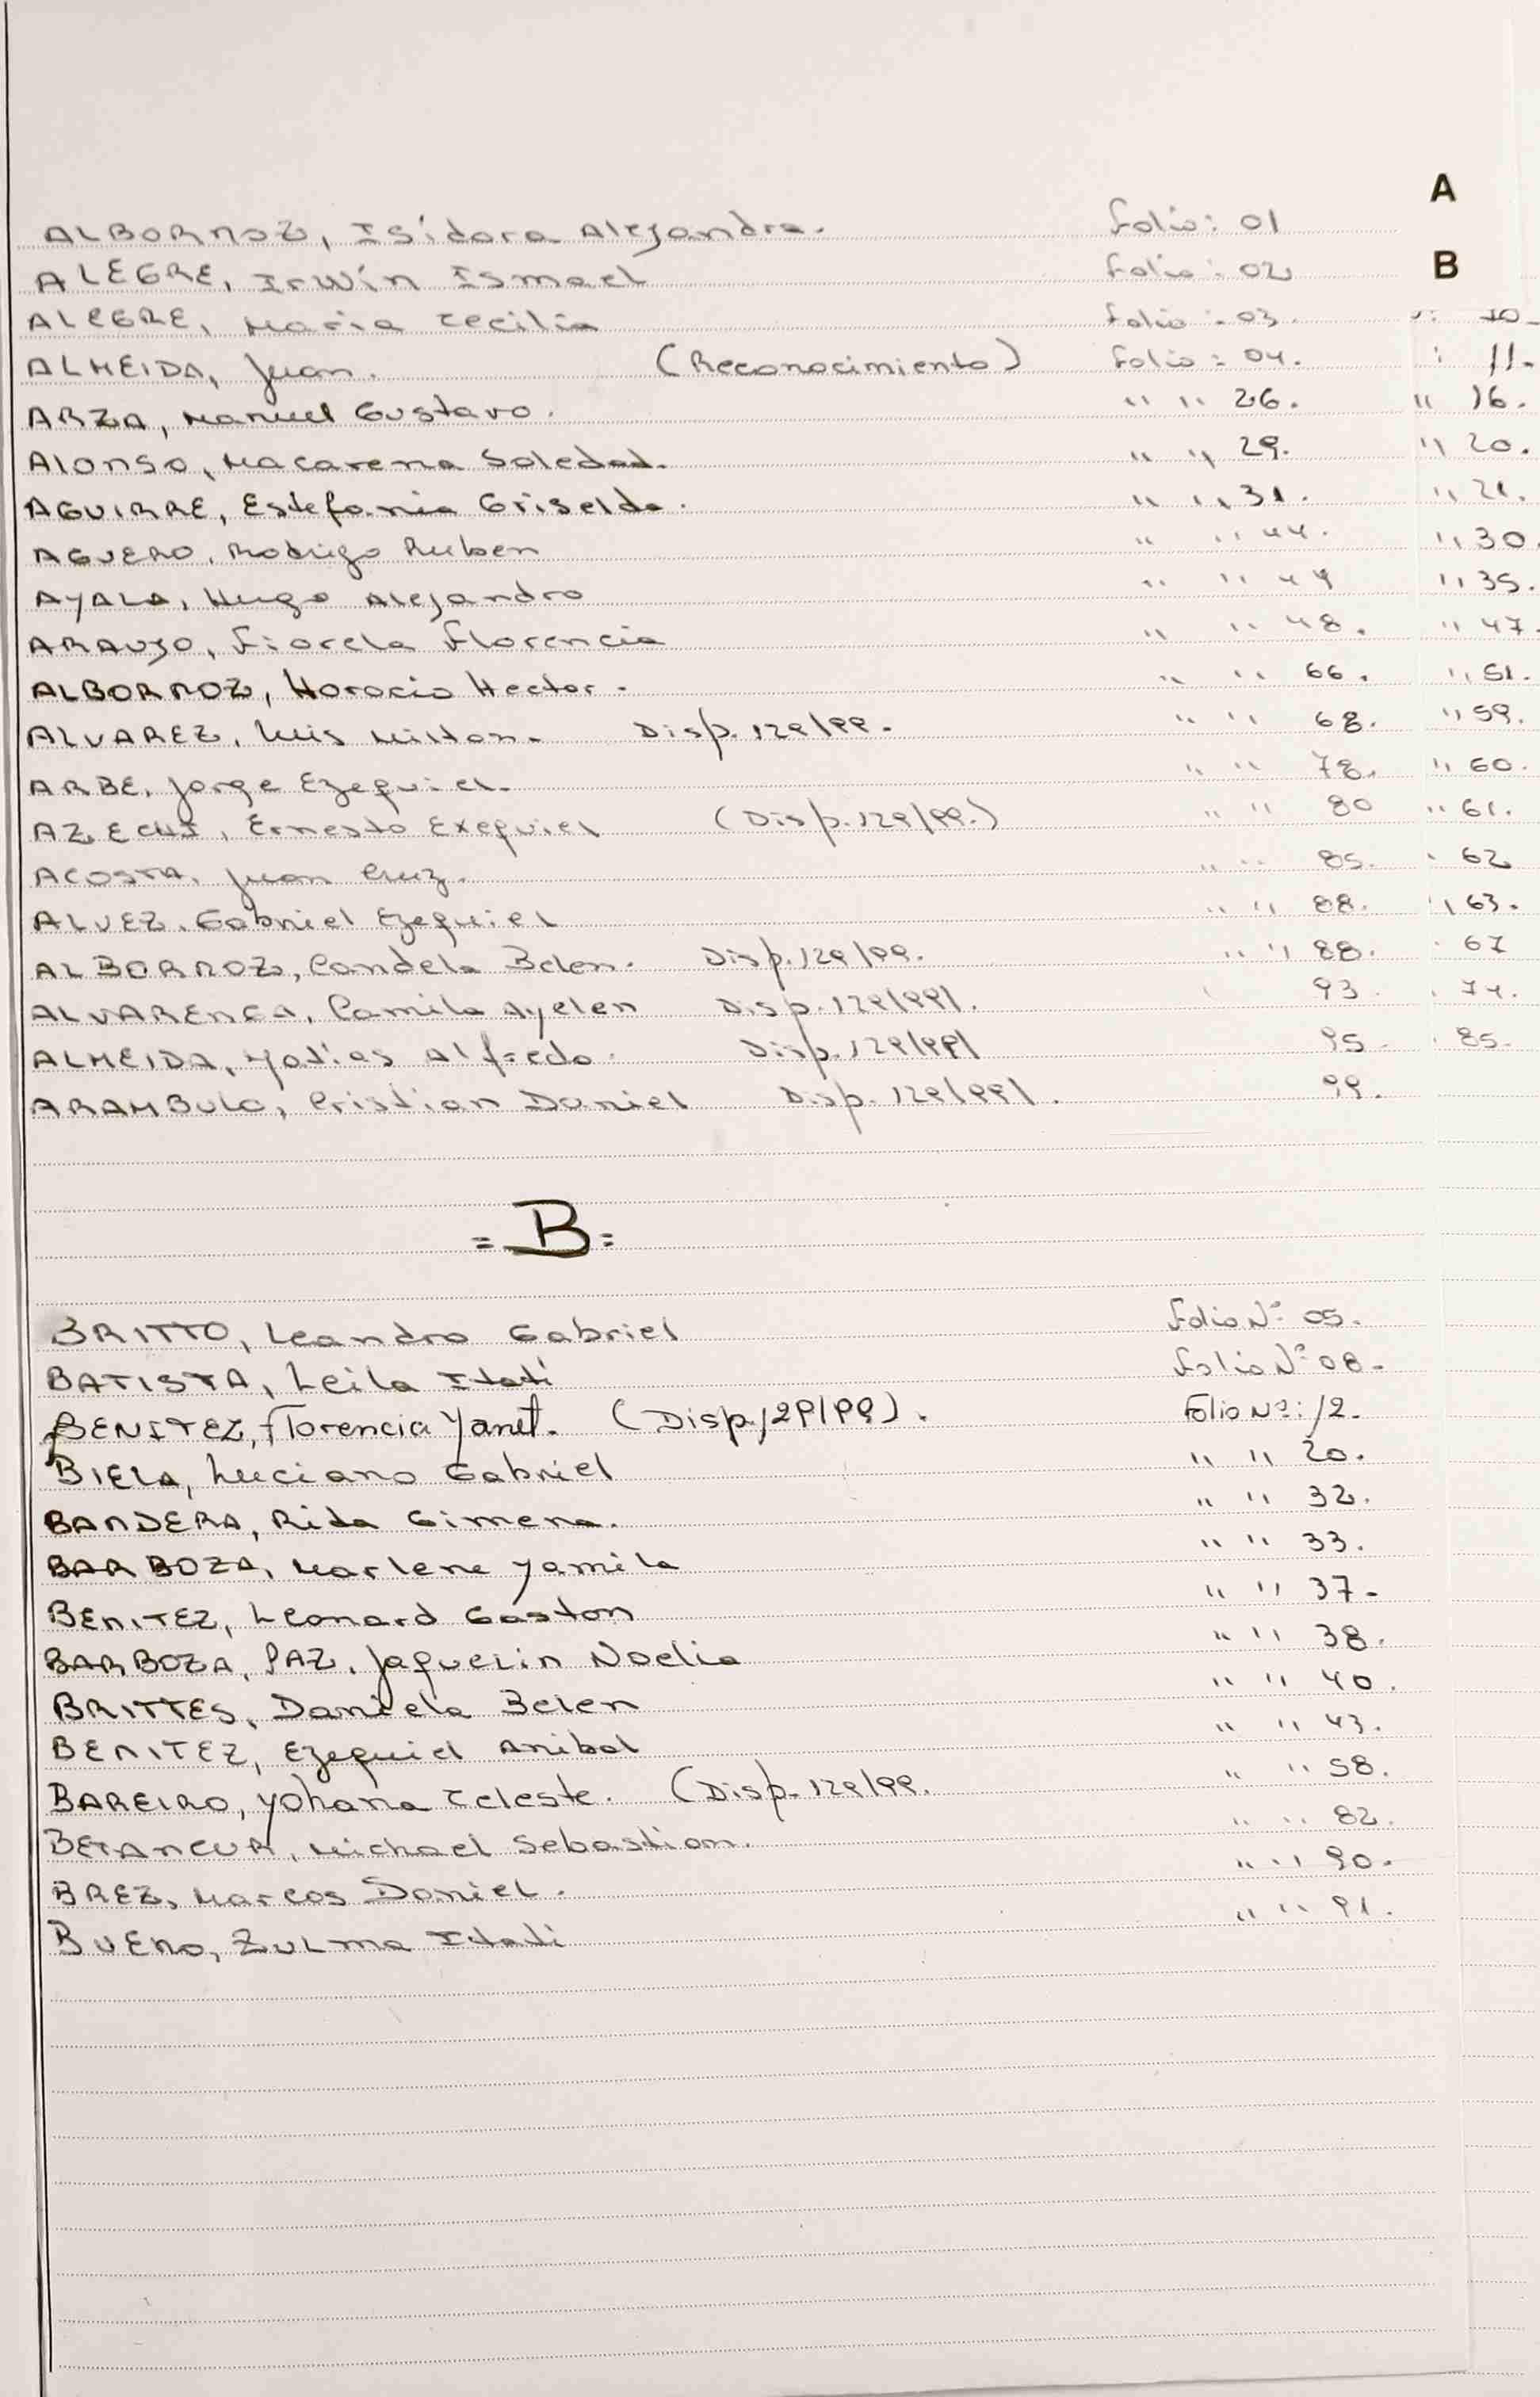 A
ALBORNOZ, Isidora Alejandra. Folio: 01
B
ALEGRE, Irwin Ismael Folio: 02
ALEGRE, Maria Cecilia Folio: 03. : 10-
ALMEIDA, Juan. (Reconocimiento) Folio: 04. : 11.
ARZA, Manuel Gustavo. " " 26. " 16.
Alonso, Macarena Soledad. " " 29. " 20.
AGUIRRE, Estefania Griselda. " " 31. " 21.
AGUERO, Rodrigo Ruben " " 44. " 30.
AYALA, Hugo Alejandro " " 44 " 35.
ARAUJO, Fiorela Florencia " " 48. " 47.
ALBORNOZ, Horacio Hector. " " 66. " 51.
ALVAREZ, Luis Milton. Disp. 129/99. " " 68. " 59.
ARBE, Jorge Ezequiel. " " 78. " 60.
AZECHI, Ernesto Exequiel (Disp. 129/99.) " " 80 " 61.
ACOSTA, Juan Cruz. " " 85. " 62
ALVEZ, Gabriel Ezequiel " " 88. " 63.
ALBORNOZ, Candela Belen. Disp. 129/99. " " 88. " 67
ALVARENGA, Camila Ayelen Disp. 129/99/. 93. " 74.
ALMEIDA, Matias Alfredo. Disp. 129/99/ 95. " 85.
ARAMBULO, Cristian Daniel Disp. 129/99/. 99.
= B =
BRITTO, Leandro Gabriel Folio Nº 05.
BATISTA, Leila Itati Folio Nº 08.
BENITEZ, Florencia Yanet. (Disp. 129/99). Folio Nº: 12.
BIELA, Luciano Gabriel " " 20.
BANDERA, Rita Gimena. " " 32.
BARBOZA, Marlene Yamila " " 33.
BENITEZ, Leonard Gaston " " 37-
BARBOZA, PAZ, Jaquelin Noelia " " 38.
BRITTES, Daniela Belen " " 40.
BENITEZ, Ezequiel Anibal " " 43.
BAREIRO, Yohana Celeste. (Disp. 129/99. " " 58.
BETANCUR, Michael Sebastian. " " 82.
BREZ, Marcos Daniel. " " 90.
BUENO, Zulma Itati " " 91.